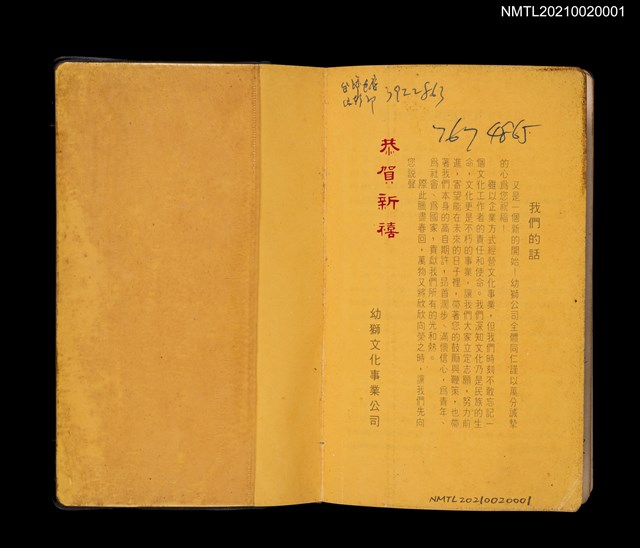 NMTL20210020001
3922863
767 4865
我們的話
又是一個新的開始！幼獅公司全體同仁謹以萬分誠摯
的心為您祝福！
雖以企業方式經營文化事業，但我們時刻不敢忘記一
個文化工作者的責任和使命。我們深知文化乃是民族的生
命，文化更是不朽的事業，讓我們大家立定志願，努力前
進，寄望能在未來的日子裡，帶著您的鼓勵與鞭策，也帶
著我們本身的高自期許，昂首闊步、滿懷信心，為青年、
為社會、為國家，貢獻我們所有的光和熱。
際此臘盡春回，萬物又將欣欣向榮之時，讓我們先向
您說聲
恭賀新禧
幼獅文化事業公司
NMTL20210020001